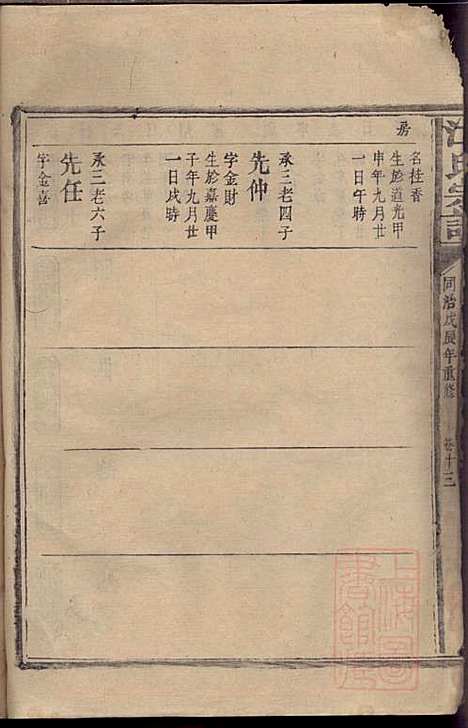 氏宗譜
同治戊辰年重修
卷十三
房
名桂香
生於道光甲
申年九月廿
一日午時
承三老四子
先仲
字金財
生於嘉慶甲
子年九月廿
一日戌時
承三老六子
先任
字金喜
上海圖
書館藏